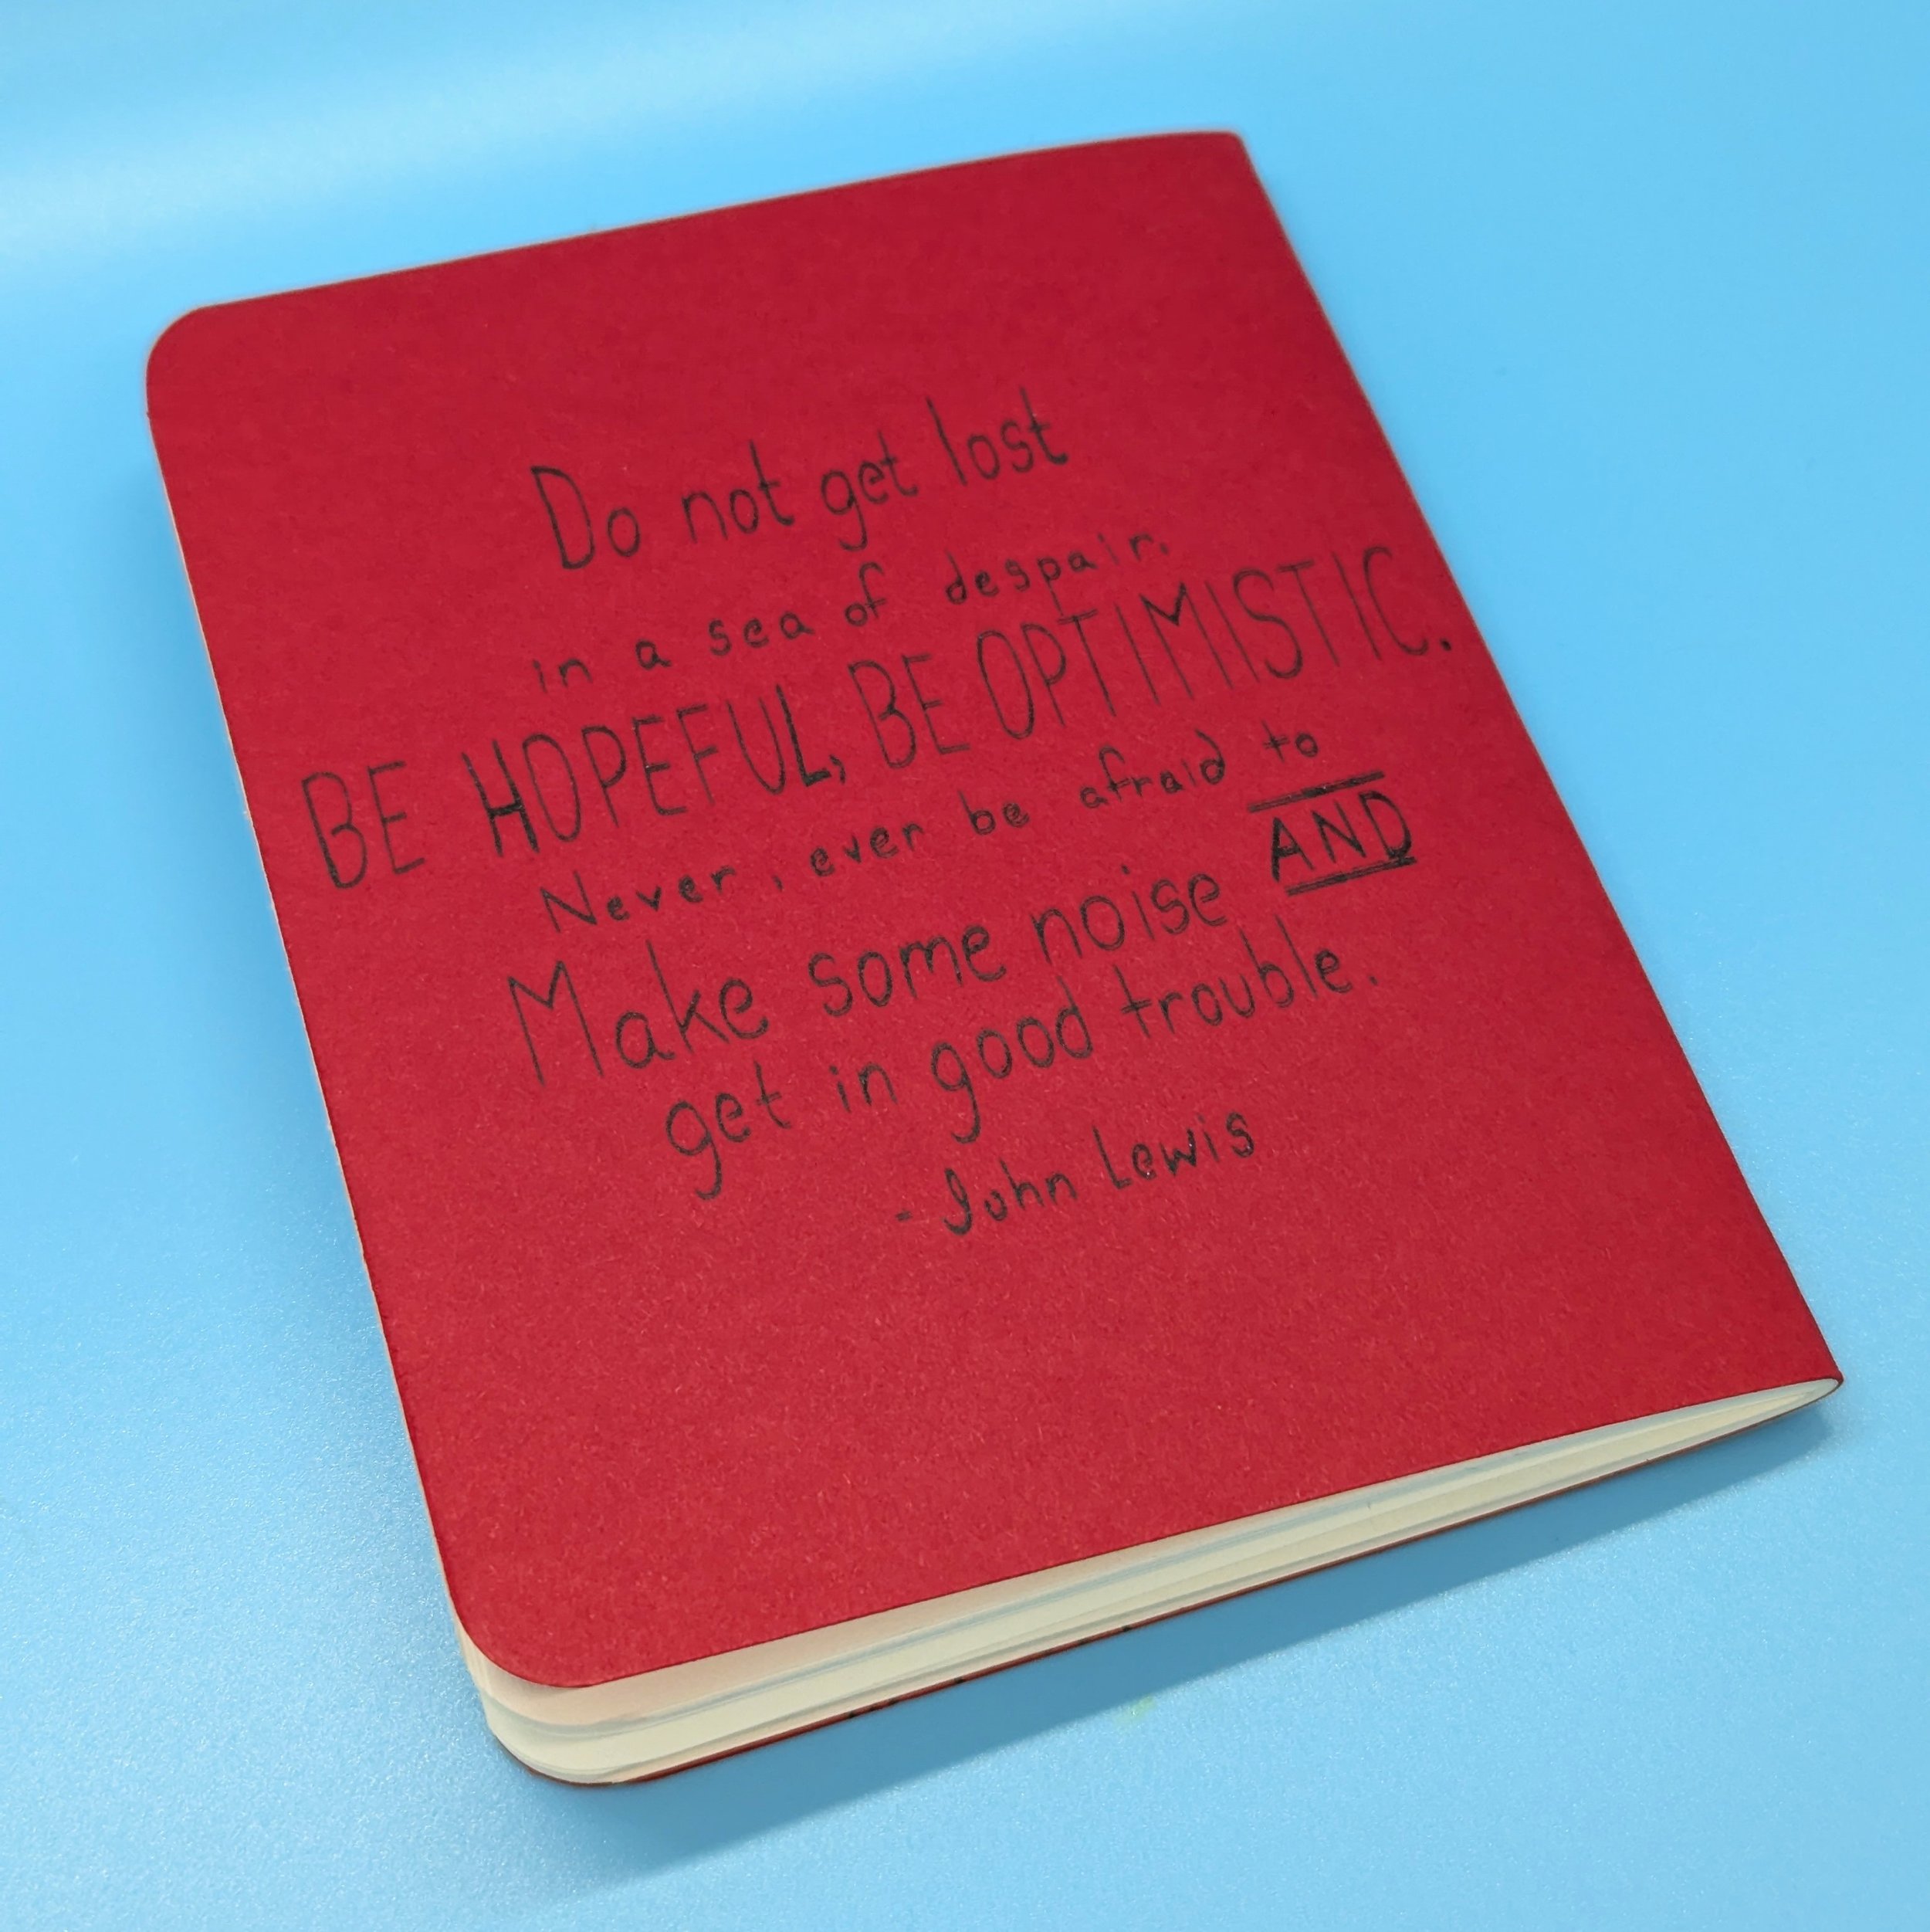 Do not get lost
in a sea of despair.
BE HOPEFUL, BE OPTIMISTIC.
Never, ever be afraid to
Make some noise AND
get in good trouble.
- John Lewis